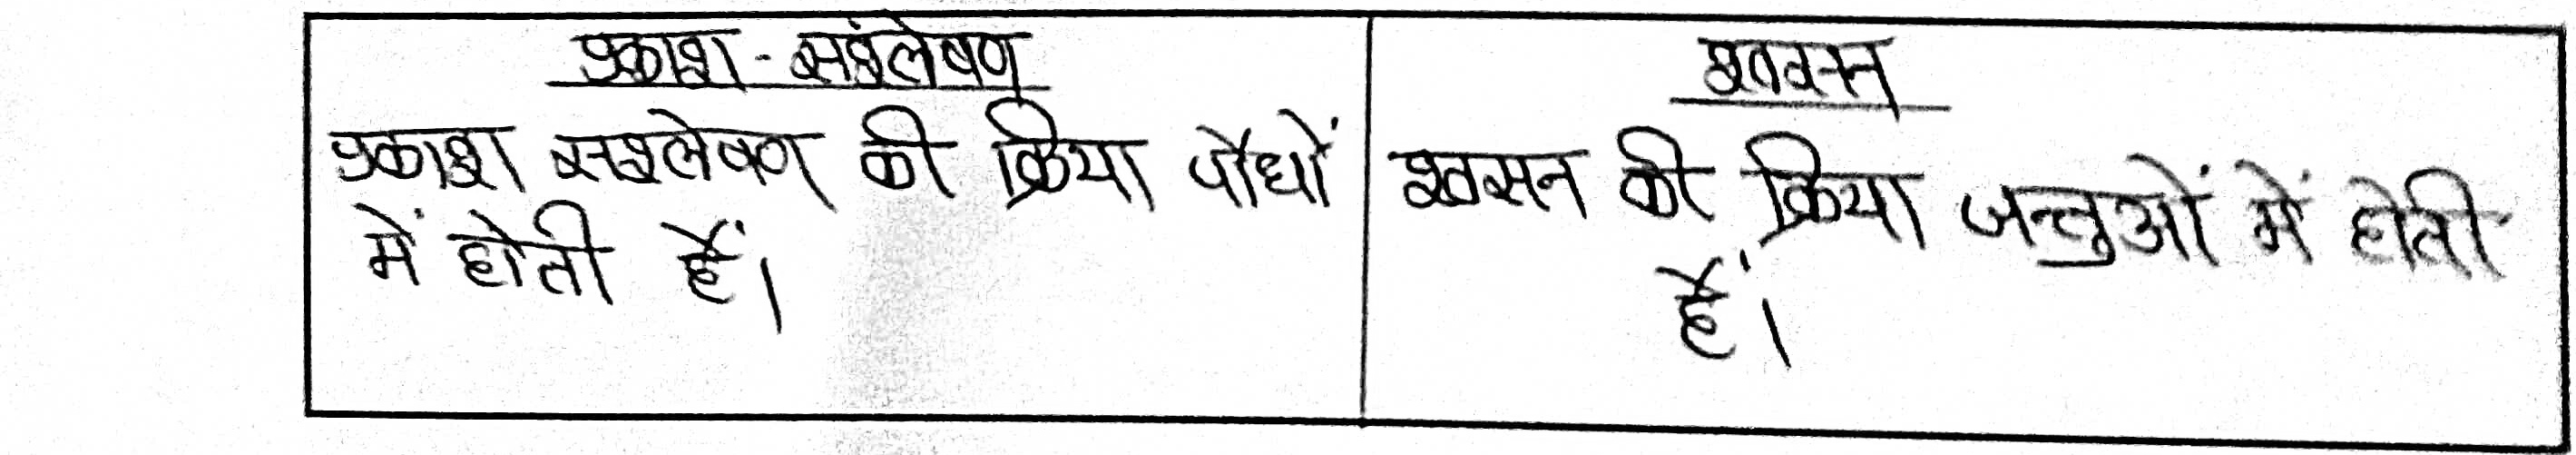 प्रकाश - संश्लेषण
प्रकाश सश्लेषण की क्रिया पौधों
में होती हैं।
श्वसन
श्वसन की क्रिया जन्तुओं में होती
हैं।